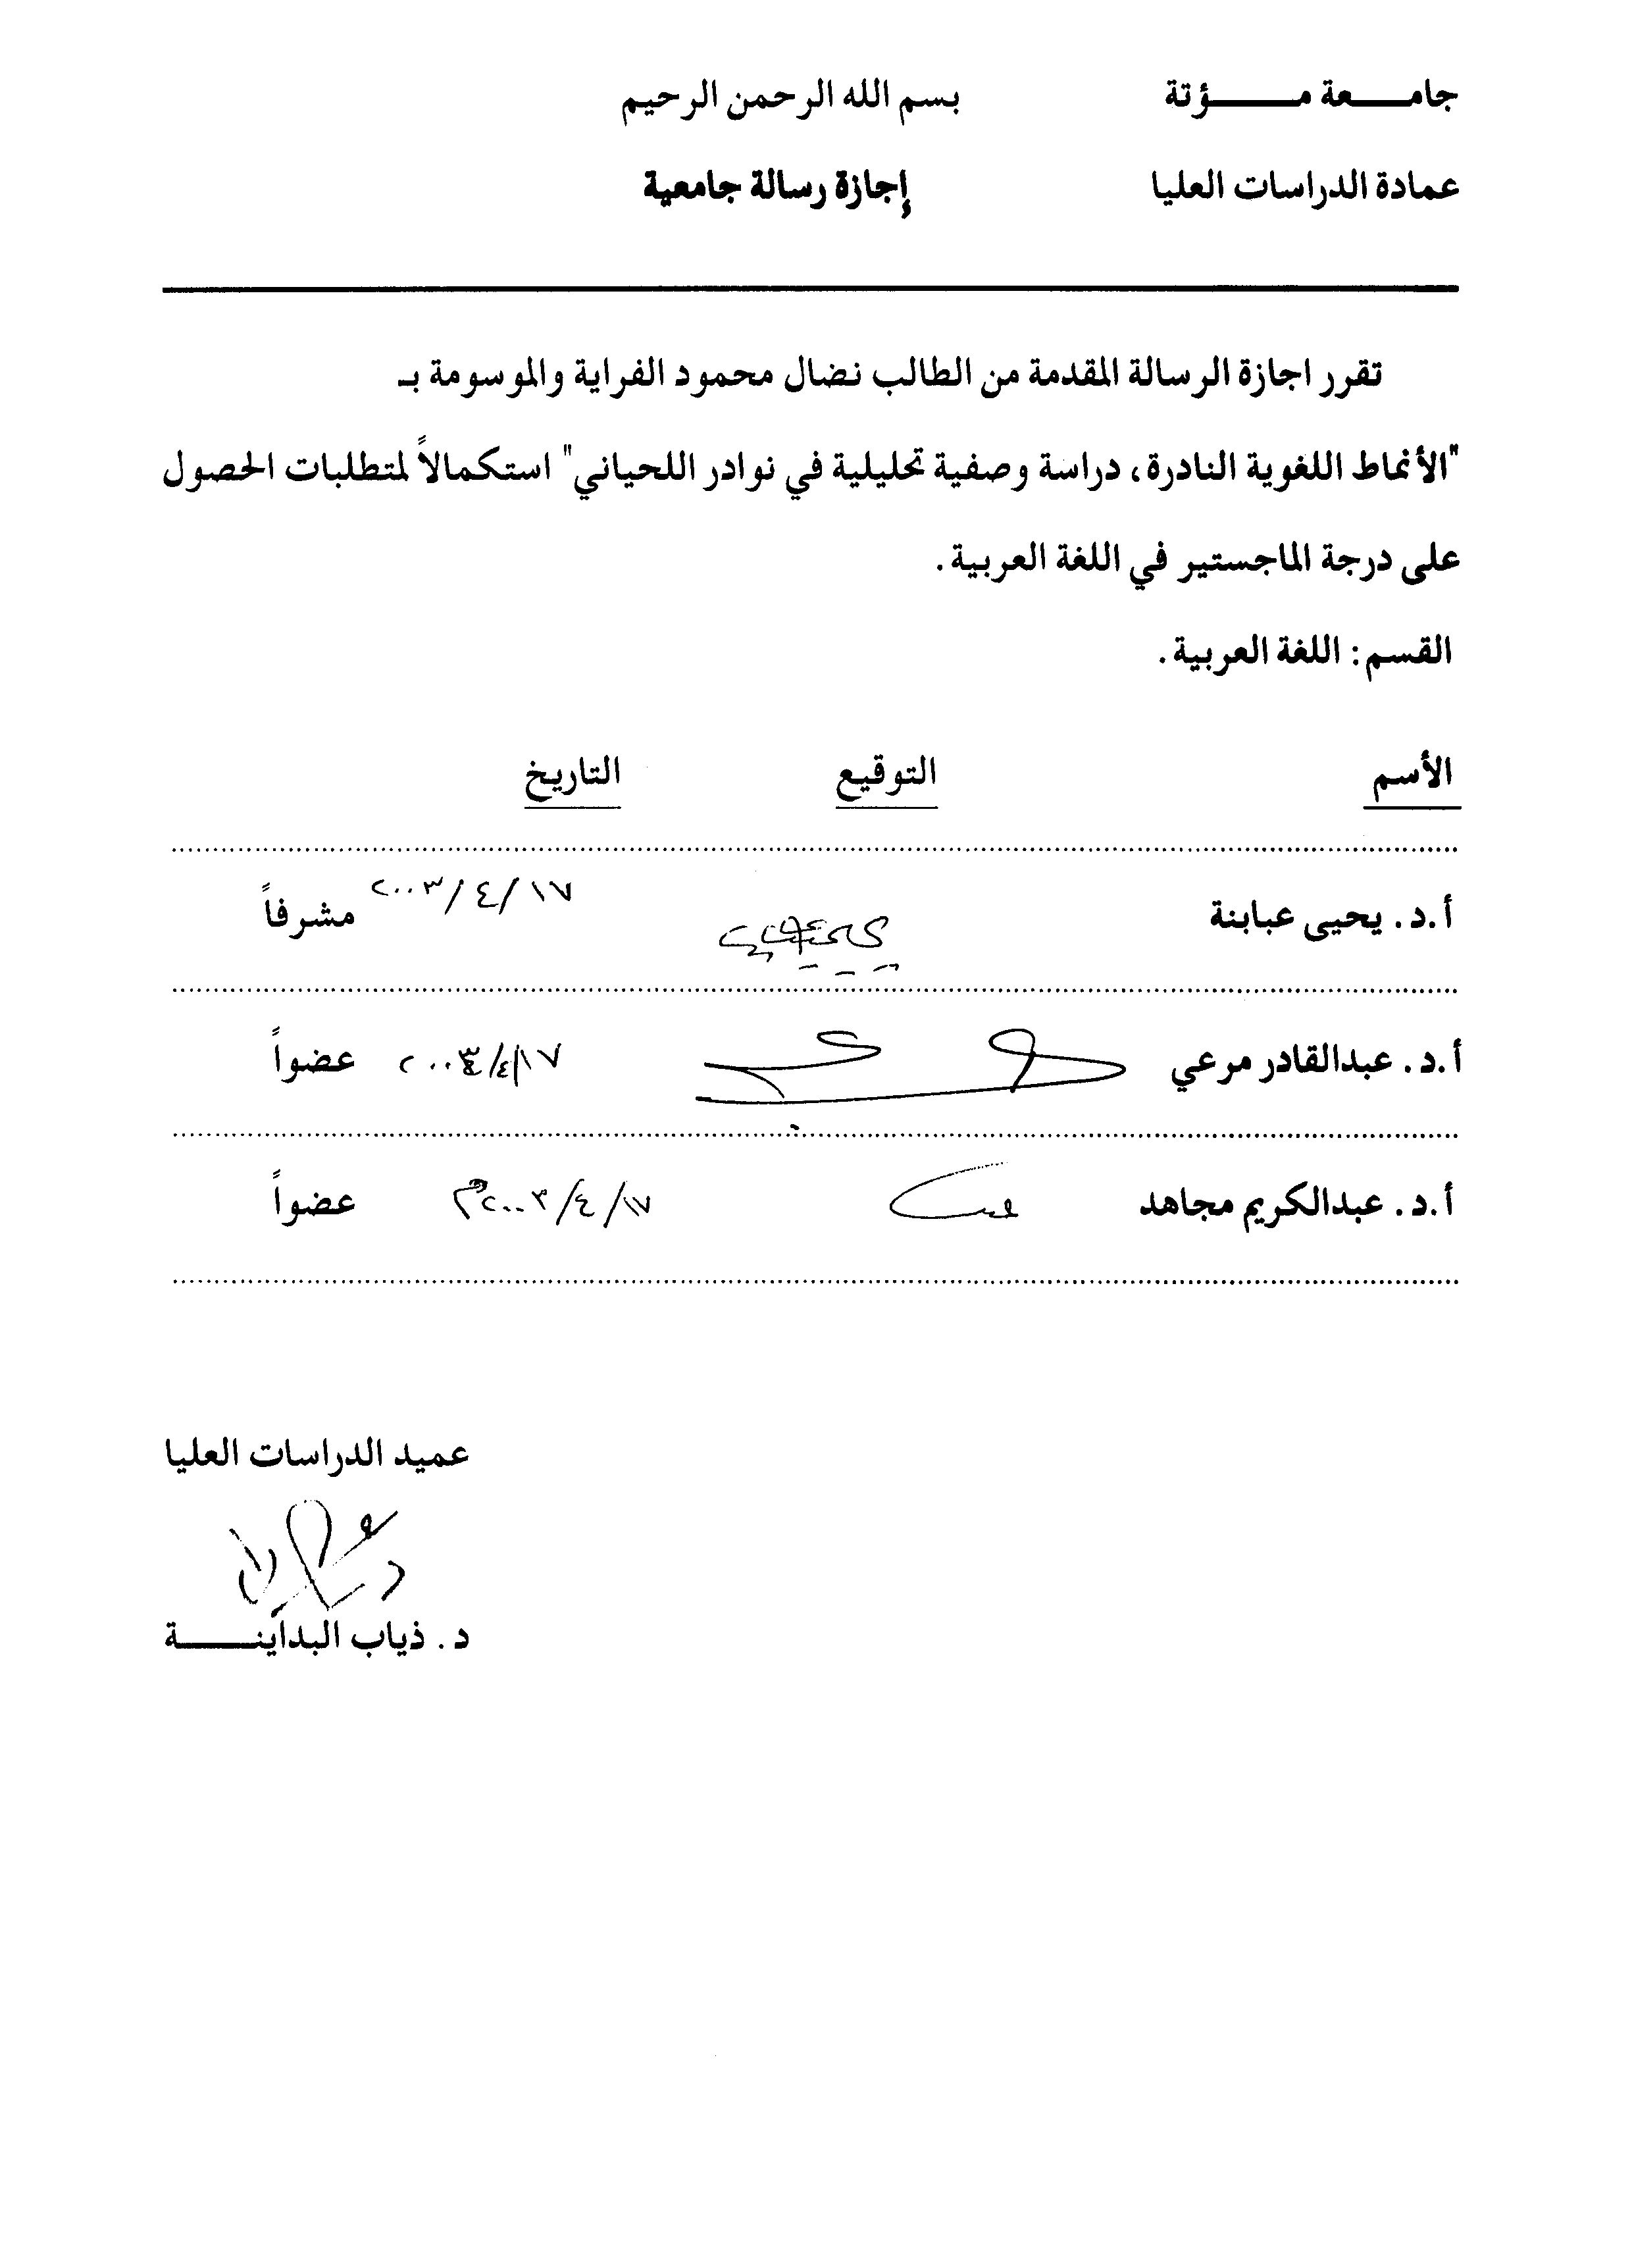 جامـــعة مـــــؤتة
بسم الله الرحمن الرحيم
عمادة الدراسات العليا
إجازة رسالة جامعية
تقرر اجازة الرسالة المقدمة من الطالب نضال محمود الفراية والموسومة بـ
"الأنماط اللغوية النادرة، دراسة وصفية تحليلية في نوادر اللحياني" استكمالاً لمتطلبات الحصول
على درجة الماجستير في اللغة العربية.
القسم: اللغة العربية.
الأسم التوقيع التاريخ
أ.د. يحيى عبابنة ١٧/٤/٢٠٠٣ مشرفاً
أ.د. عبدالقادر مرعي ١٧/٤/٢٠٠٣ عضواً
أ.د. عبدالكريم مجاهد ١٧/٤/٢٠٠٣م عضواً
عميد الدراسات العليا
د. ذياب البداينـــــة